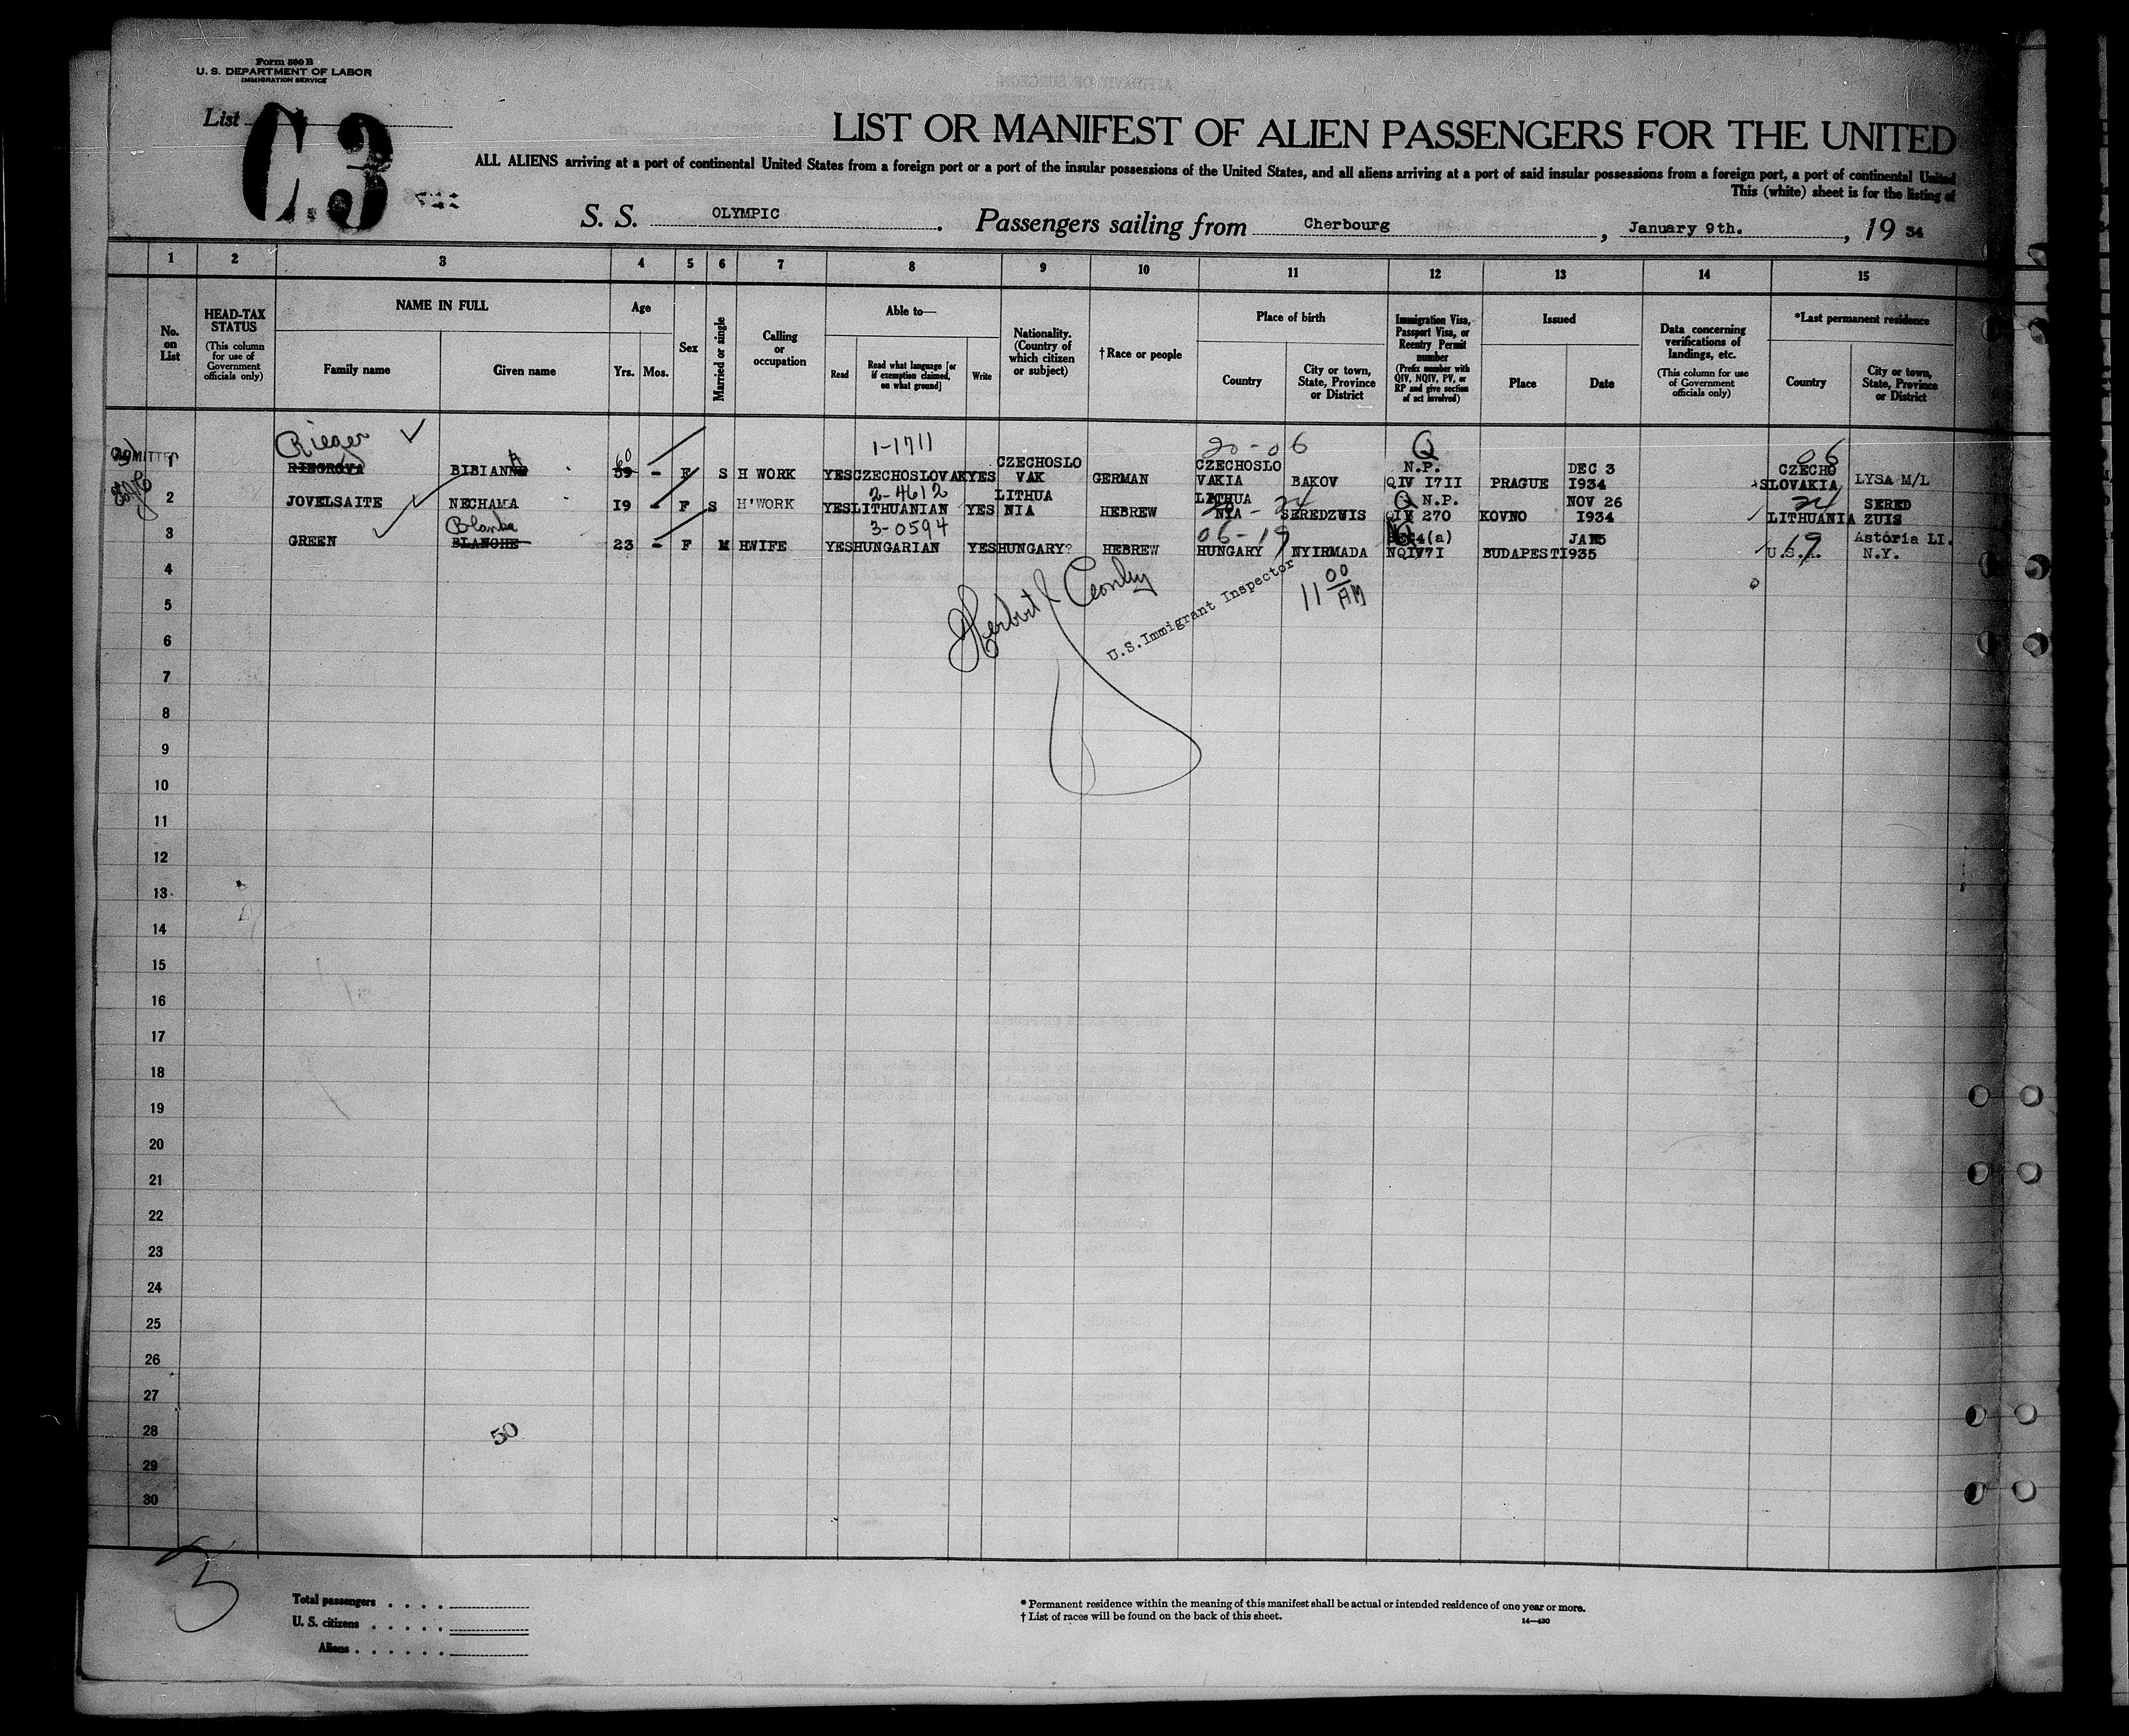 Form 500 B
U. S. DEPARTMENT OF LABOR
IMMIGRATION SERVICE
List C.3
LIST OR MANIFEST OF ALIEN PASSENGERS FOR THE UNITED
ALL ALIENS arriving at a port of continental United States from a foreign port or a port of the insular possessions of the United States, and all aliens arriving at a port of said insular possessions from a foreign port, a port of continental United
This (white) sheet is for the listing of
S. S. OLYMPIC. Passengers sailing from Cherbourg, January 9th., 19 34
1 2 3 4 5 6 7 8 9 10 11 12 13 14 15
No. on List
HEAD-TAX STATUS (This column for use of Government officials only)
NAME IN FULL
Family name
Given name
Age
Yrs. Mos.
Sex
Married or single
Calling or occupation
Able to—
Read
Read what language [or if exemption claimed, on what ground]
Write
Nationality. (Country of which citizen or subject)
† Race or people
Place of birth
Country
City or town, State, Province or District
Immigration Visa, Passport Visa, or Reentry Permit number (Prefix number with QIV, NQIV, PV, or RP and give section of act involved)
Issued
Place
Date
Data concerning verifications of landings, etc. (This column for use of Government officials only)
*Last permanent residence
Country
City or town, State, Province or District
Rieger 60 1-1711 20-06 Q 06
ADMITTED
1 RIEGROVA BIBIANNE A 59 - F S H WORK YES CZECHOSLOVAK YES CZECHOSLO VAK GERMAN CZECHOSLO VAKIA BAKOV N.P. QIV I7II PRAGUE DEC 3 I934 CZECHO SLOVAKIA LYSA M/L
2-4612 24 Q 24
2 JOVELSAITE NECHAMA I9 - F S H'WORK YES LITHUANIAN YES LITHUA NIA HEBREW LITHUA NIA SEREDZUIS N.P. QIV 270 KOVNO NOV 26 I934 LITHUANIA SERED ZUIS
Blanka 3-0594 06-19 19
3 GREEN BLANCHE 23 - F M HWIFE YES HUNGARIAN YES HUNGARY? HEBREW HUNGARY NYIRMADA 4(a) NQIV7I BUDAPEST JAN5 I935 U.S.A. Astoria LI. N.Y.
4
5
U.S.Immigrant Inspector
11 00 AM
6
7
8
9
10
11
12
13
14
15
16
17
18
19
20
21
22
23
24
25
26
27
28
50
29
30
3
Total passengers
U. S. citizens
Aliens
* Permanent residence within the meaning of this manifest shall be actual or intended residence of one year or more.
† List of races will be found on the back of this sheet.
14—430